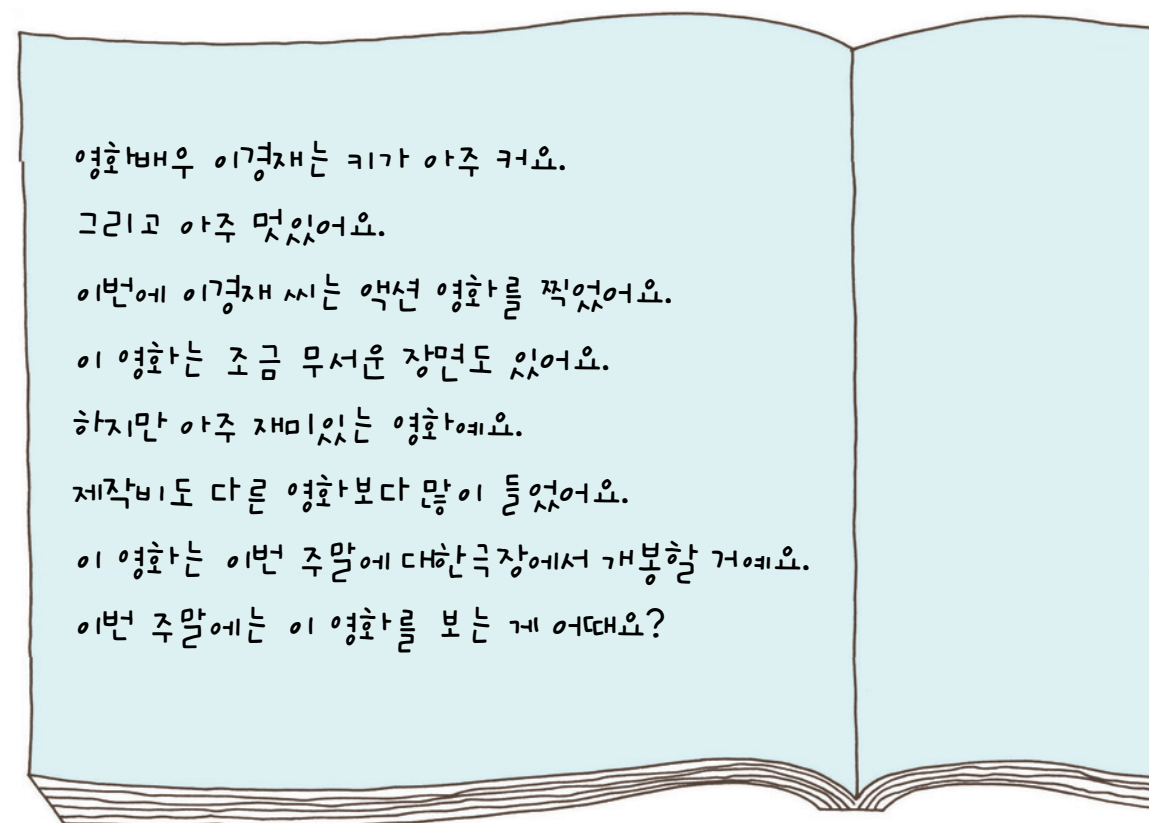 영화배우 이경재는 키가 아주 커요.
그리고 아주 멋있어요.
이번에 이경재 씨는 액션 영화를 찍었어요.
이 영화는 조금 무서운 장면도 있어요.
하지만 아주 재미있는 영화예요.
제작비도 다른 영화보다 많이 들었어요.
이 영화는 이번 주말에 대한극장에서 개봉할 거예요.
이번 주말에는 이 영화를 보는 게 어때요?